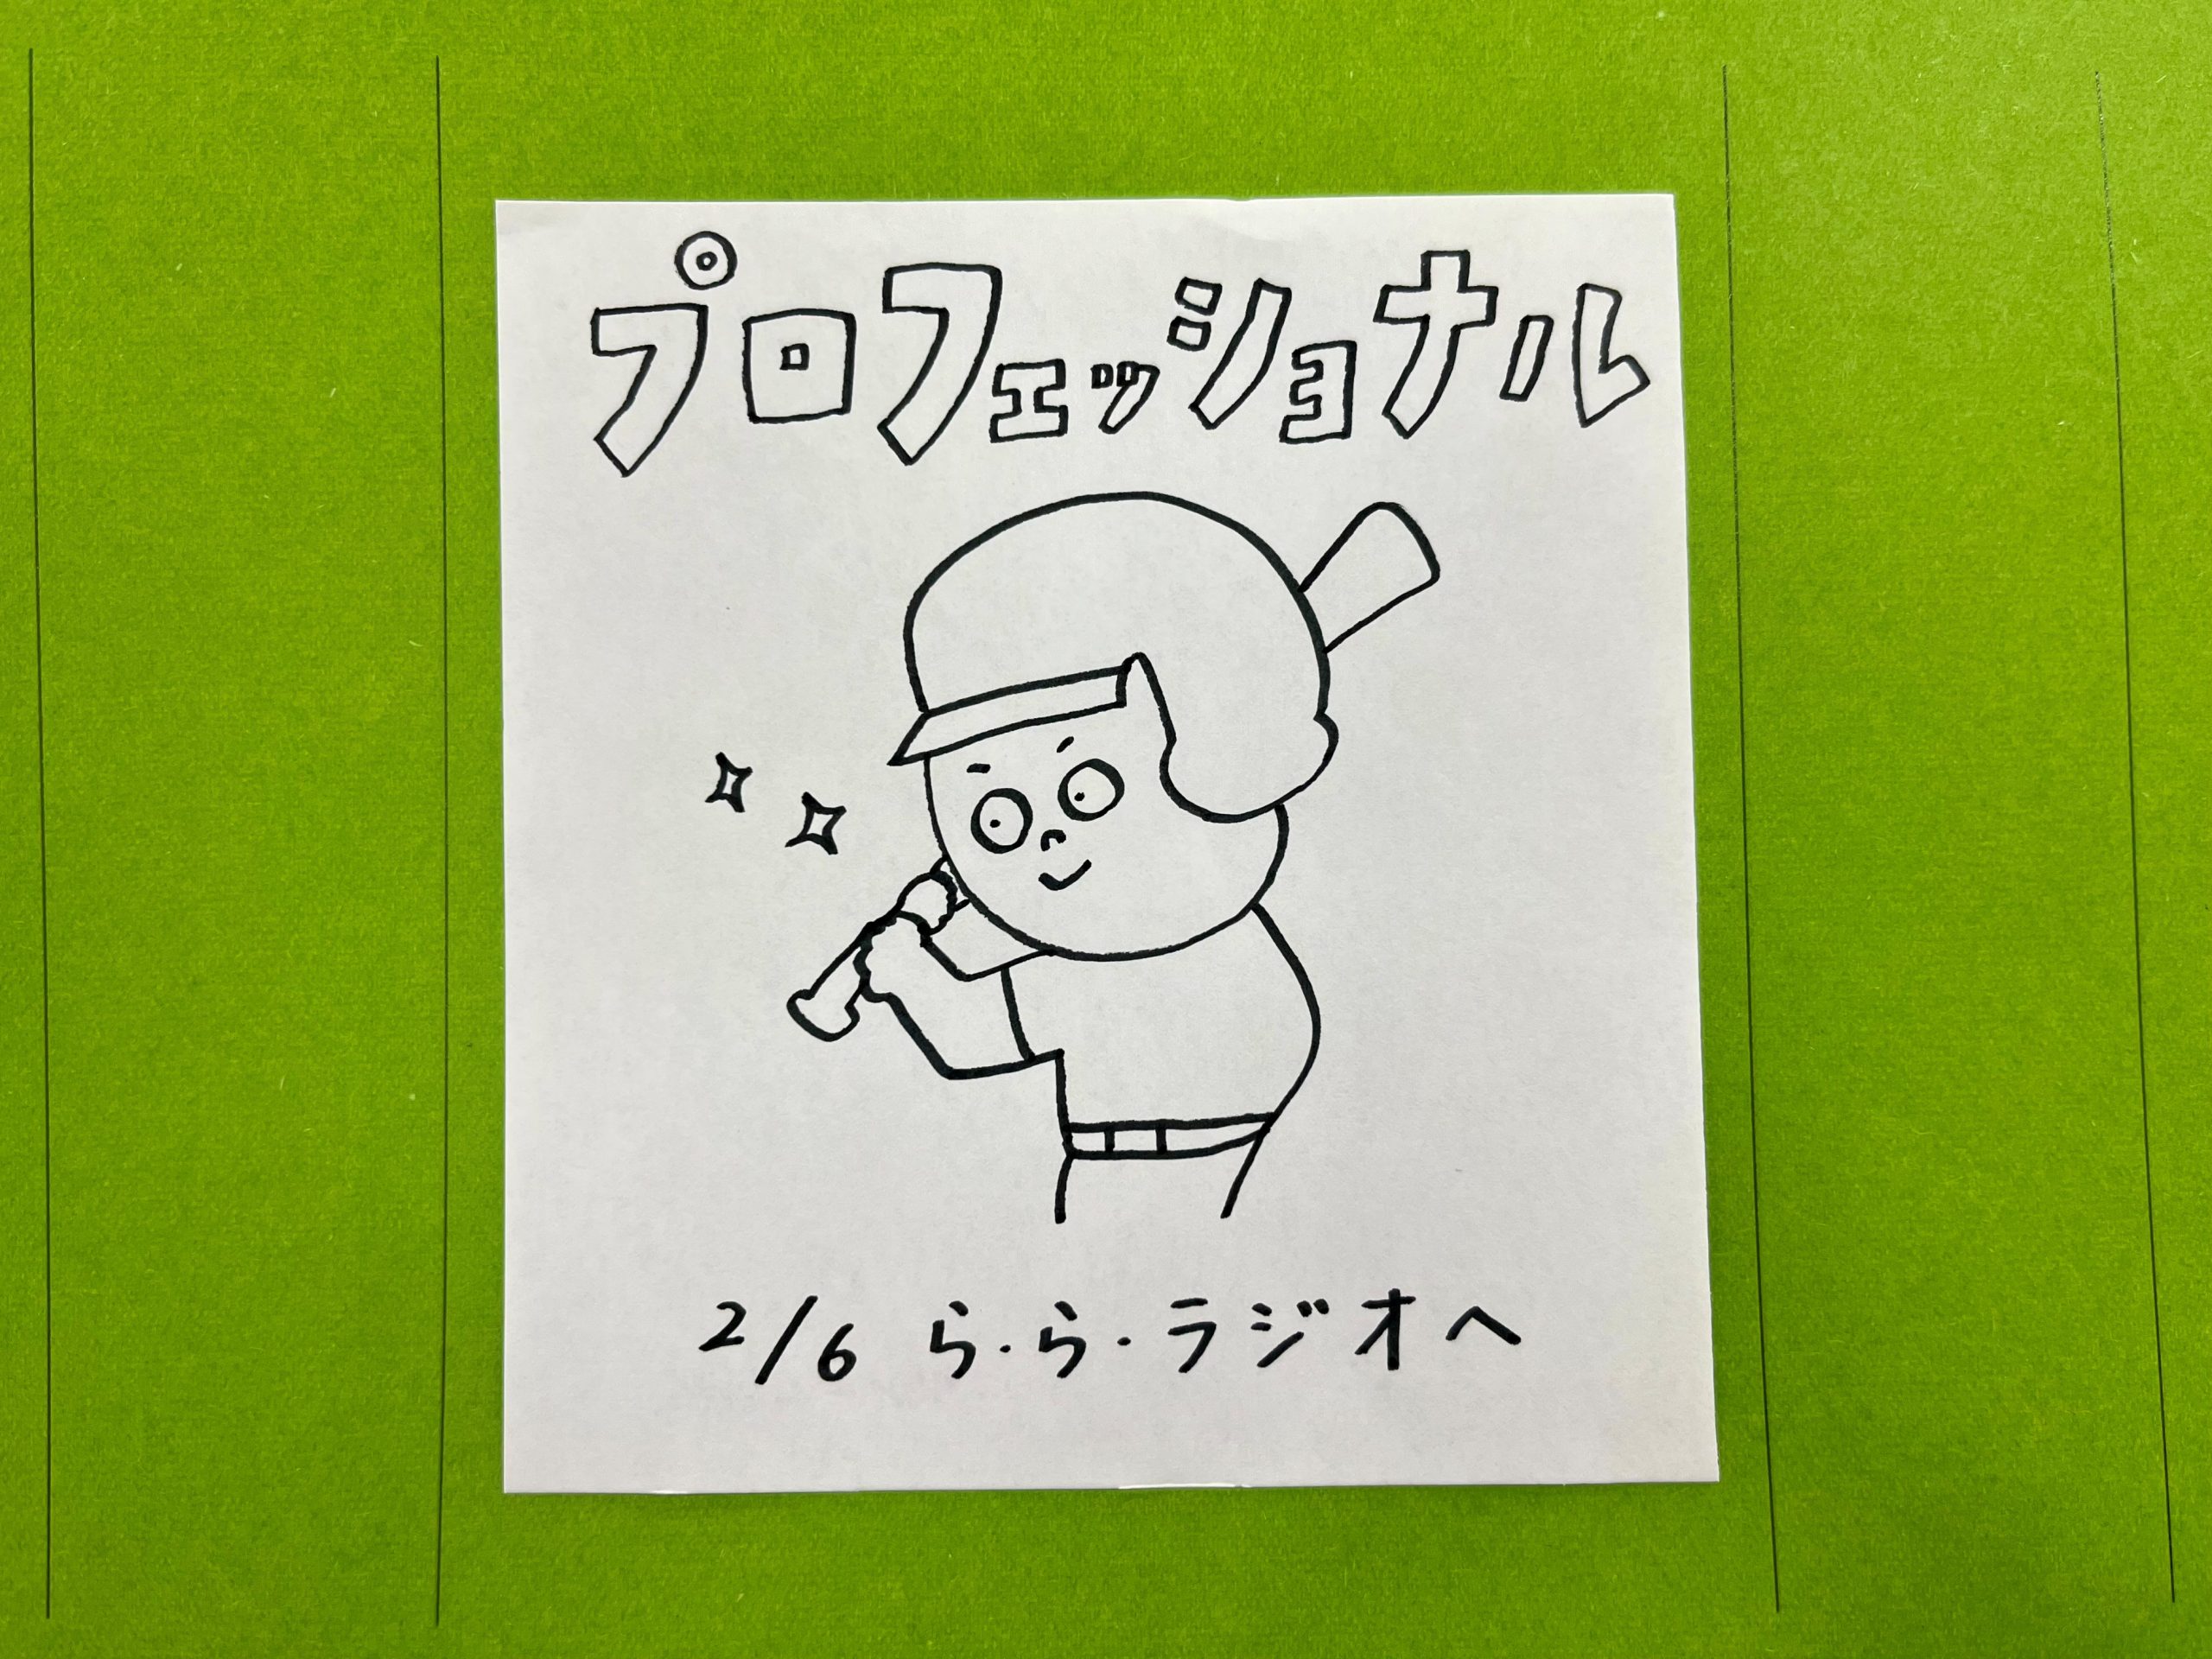 プロフェッショナル
2/6 ら・ら・ラジオへ